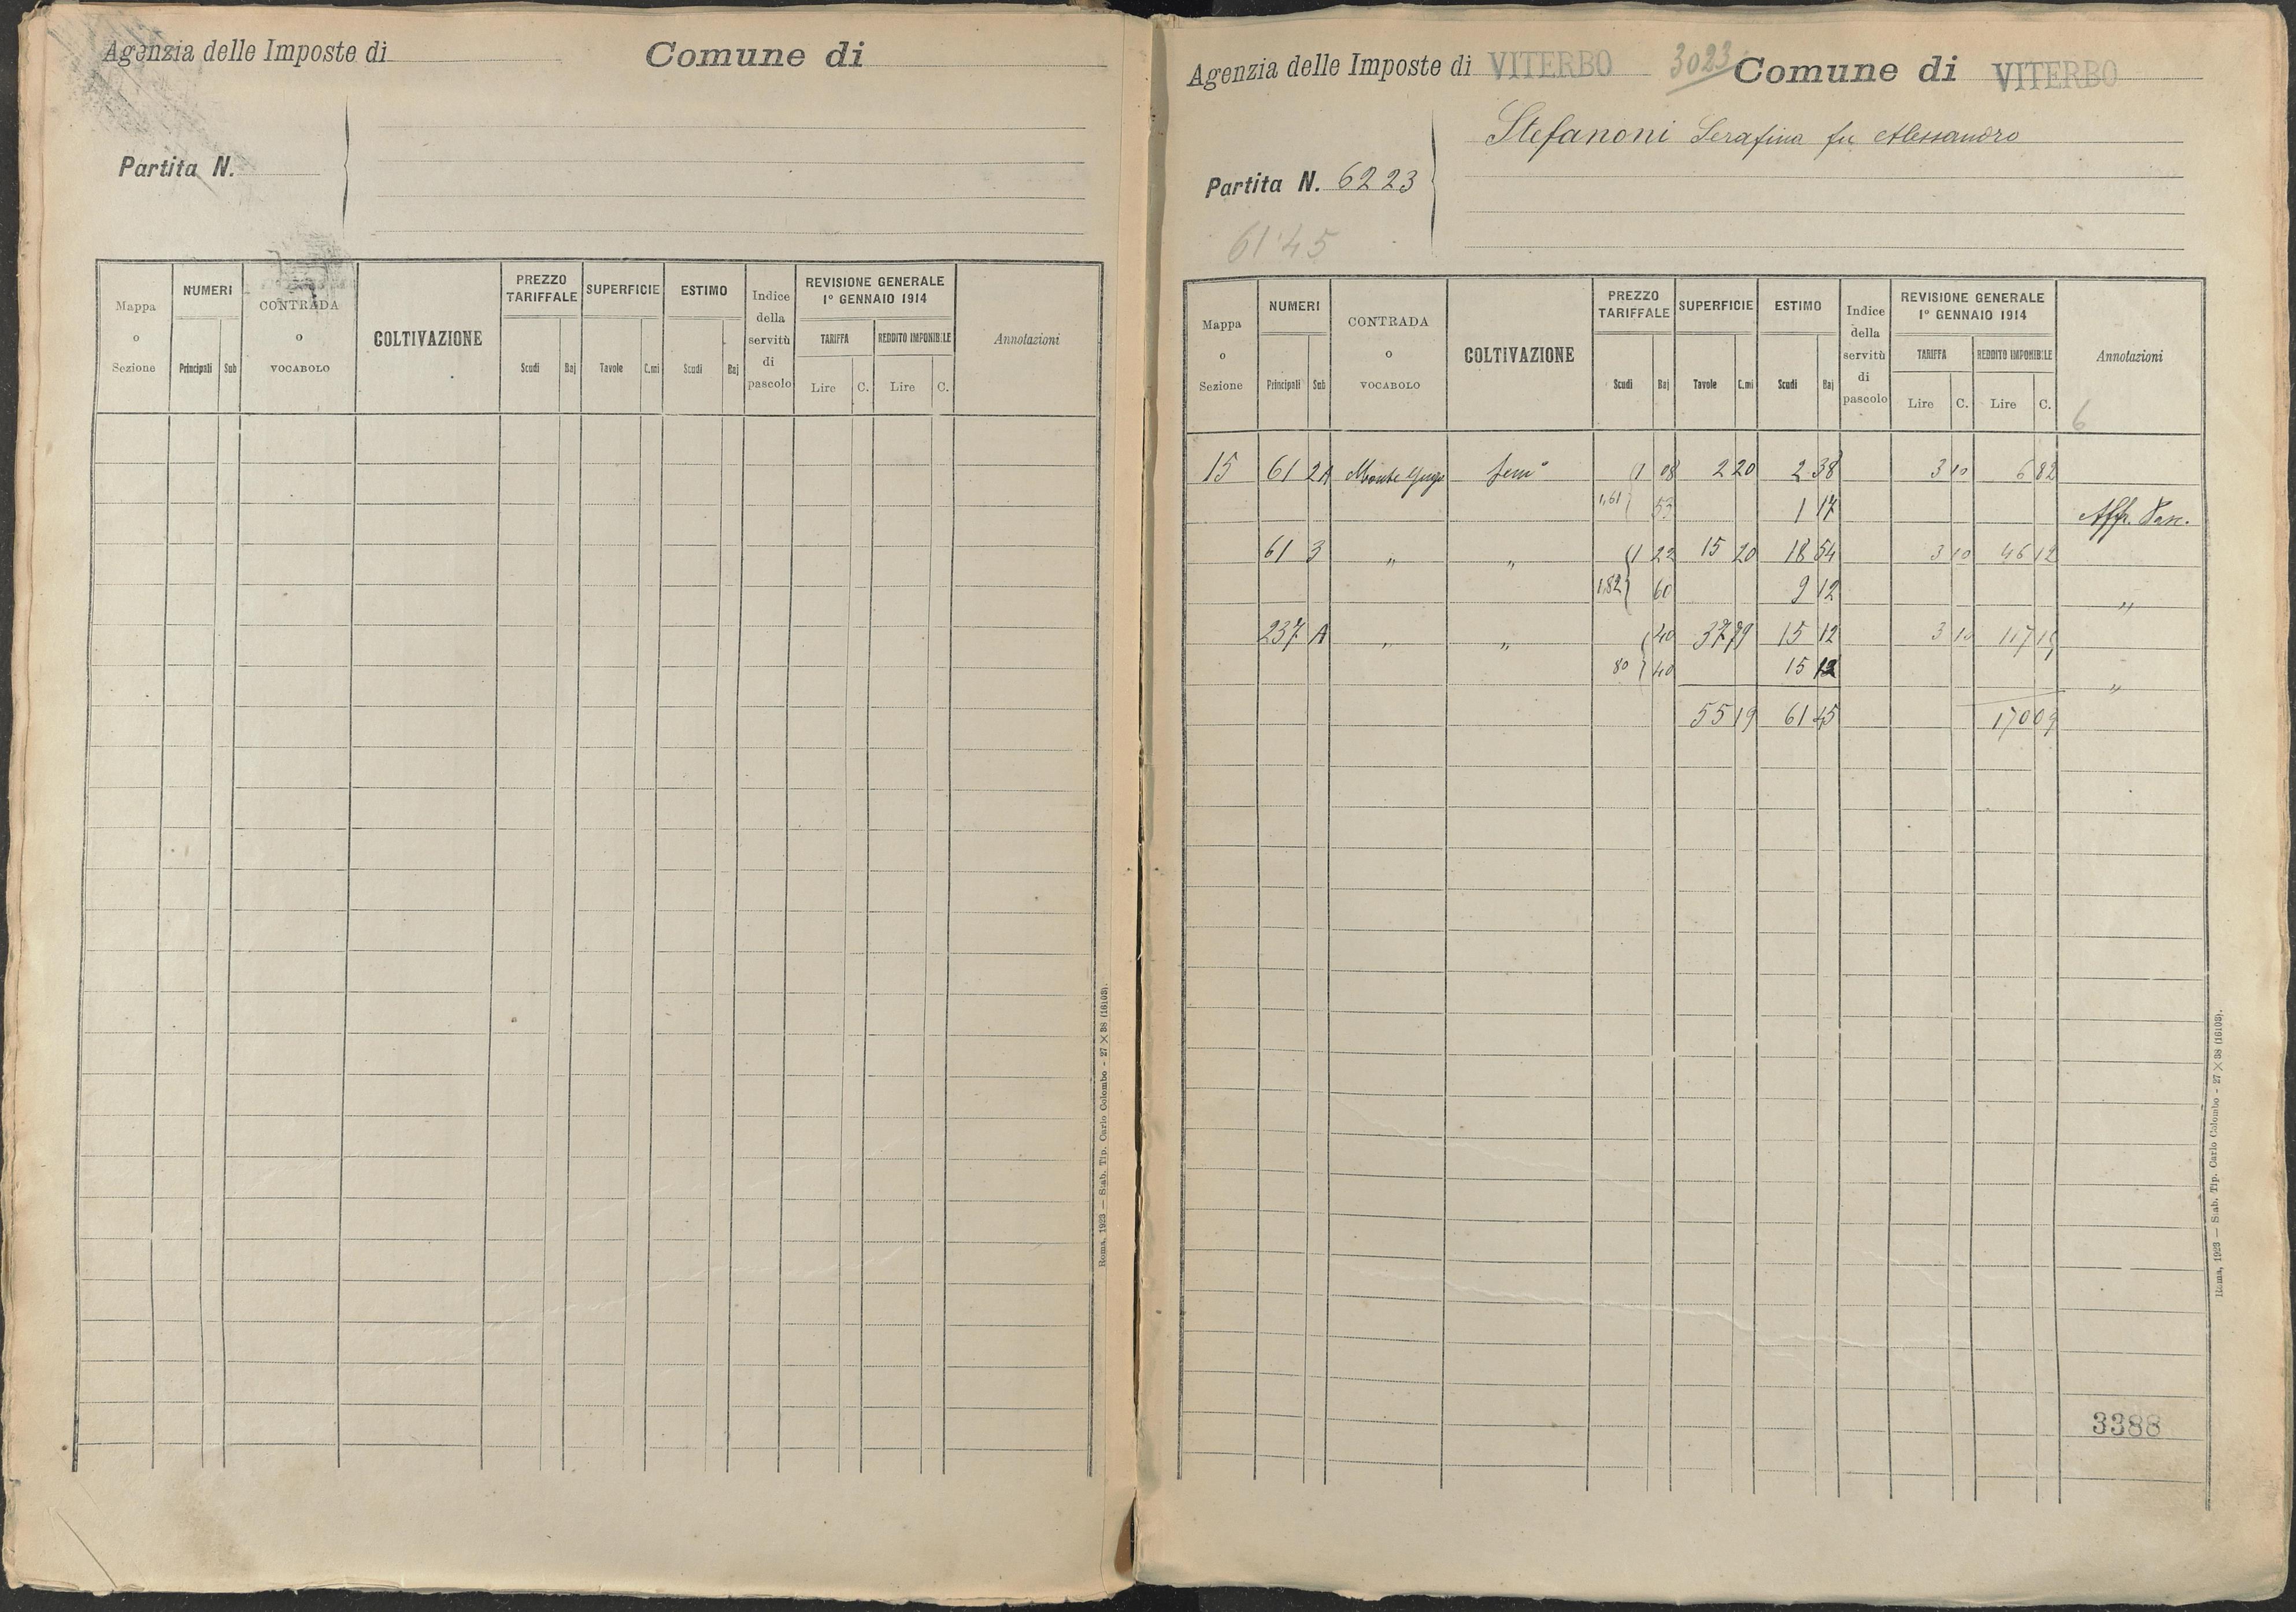 Agenzia delle Imposte di Comune di
Partita N.
Mappa o Sezione NUMERI Principali Sub CONTRADA o VOCABOLO COLTIVAZIONE PREZZO TARIFFALE Scudi Baj SUPERFICIE Tavole C.mi ESTIMO Scudi Baj Indice della servitù di pascolo REVISIONE GENERALE 1° GENNAIO 1914 TARIFFA Lire C. REDDITO IMPONIBILE Lire C. Annotazioni
Roma, 1923 — Stab. Tip. Carlo Colombo - 27 × 38 (16103).
Agenzia delle Imposte di VITERBO 3023 Comune di VITERBO
Stefanoni Serafina fu Alessandro
Partita N. 6223
61.45
Mappa o Sezione NUMERI Principali Sub CONTRADA o VOCABOLO COLTIVAZIONE PREZZO TARIFFALE Scudi Baj SUPERFICIE Tavole C.mi ESTIMO Scudi Baj Indice della servitù di pascolo REVISIONE GENERALE 1° GENNAIO 1914 TARIFFA Lire C. REDDITO IMPONIBILE Lire C. Annotazioni
6
15 61 2A Monte Sem° 1 08 2 20 2 38 3 10 6 82
1,61 53 1 17 Aff.
61 3 " " 1 22 15 20 18 54 3 10 46 12
1,82 60 9 12 "
237 A " " 40 37 79 15 12 3 10 117 15
80 40 15 12 "
55 19 61 45 170 09
3388
Roma, 1923 — Stab. Tip. Carlo Colombo - 27 × 38 (16103).